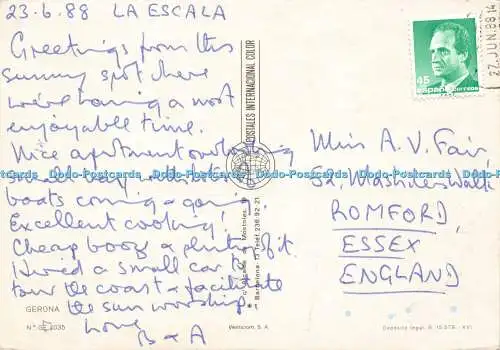 23-6-88 LA ESCALA
Greetings from this
sunny spot where
we're having a most
enjoyable time.
Nice apartment overlooking
small bay with lots of
boats coming & going
Excellent cooking!
Cheap booz & plenty of it.
Hired a small car to
tour the coast & facilitate
the sun worship.
Love
B & A
GERONA
POSTALES INTERNACIONAL COLOR
Barcelona 13 Telef. 236-92-21
45
ESPAÑA correos
27 JUN. 88 14
Miss A. V. Fair
52, Mashiters Walk
ROMFORD,
ESSEX
ENGLAND
Depósito legal B.
Dodo-Postcards Dodo-Postcards Dodo-Postcards Dodo-Postcards Dodo-Postcards